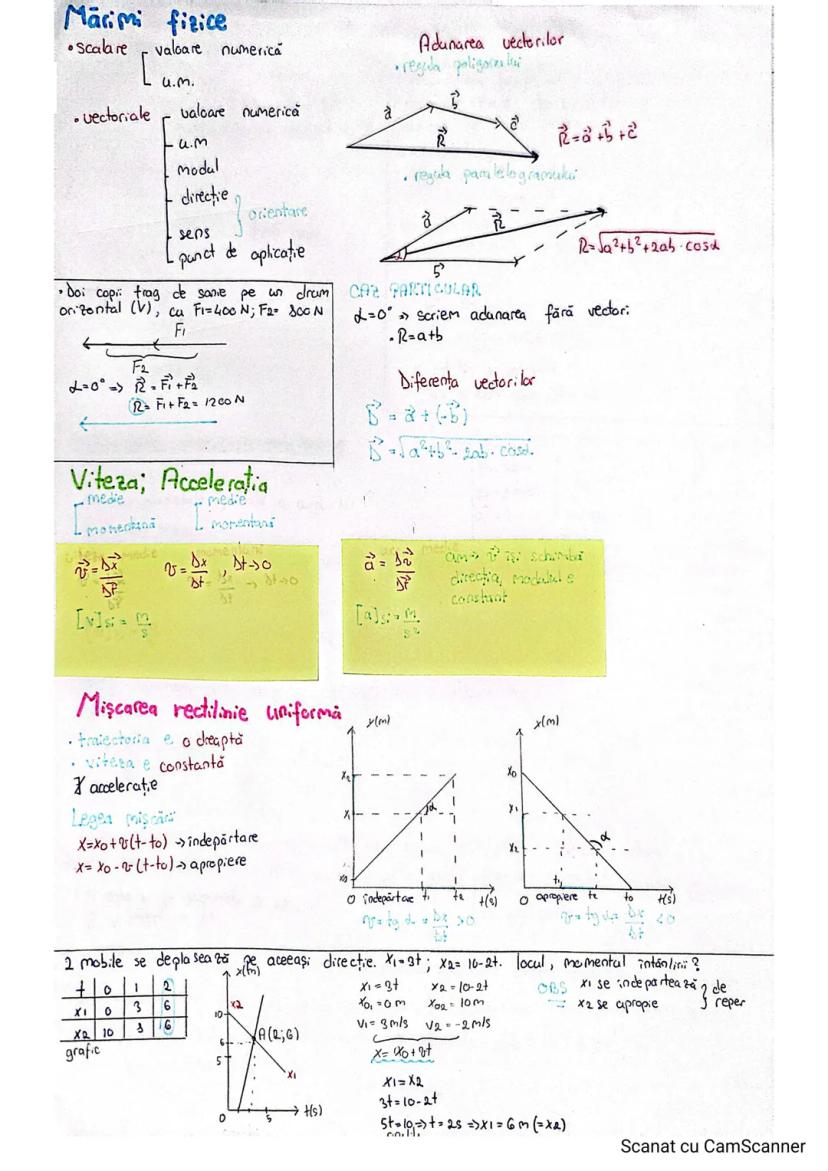 Mărimi fizice
• scalare
valoare numerică
u.m.
• vectoriale
valoare numerică
u.m
modul
direcție
orientare
sens
punct de aplicație
Adunarea vectorilor
• regula poligonului
a b c
R
R=a+b+c
• regula paralelogramului
a R
α
b
R=√a²+b²+2ab·cosα
• Doi copii trag de sanie pe un drum
orizontal (V), cu F1=400N; F2= 800N
F1
F2
α=0° => R = F1+F2
R= F1+F2= 1200N
CAZ PARTICULAR
α=0° => scriem adunarea fără vectori
• R=a+b
Diferența vectorilor
D = a + (-b)
D =√a²+b²- 2ab·cosα
Viteza; Accelerația
medie medie
momentană momentană
v = Δx/Δt v= Δx/Δt , Δt→0
[v]SI = m/s
a = Δv/Δt
v își schimbă
direcția, modulul e
constant
[a]SI = m/s²
Mișcarea rectilinie uniformă
• traiectoria e o dreaptă
• viteza e constantă
∄ accelerație
Legea mișcării
x=x0+v(t-t0) → îndepărtare
x= x0-v(t-t0) → apropiere
x2
x1
x0
α
0 îndepărtare t1 t2 t(s)
v= tg α = Δx/Δt >0
x(m)
x0
x1
x2
α
t1
0 apropiere t2 t0 t(s)
v= tg α= Δx/Δt <0
2 mobile se deplasează pe aceeași direcție. x1=3t; x2= 10-2t. locul, momentul întâlnirii?
t 0 1 2
x1 0 3 6
x2 10 3 6
grafic
x(m)
x2
10
6
5
A(2;6)
x1
0 5 t(s)
x1=3t x2=10-2t
x01=0m x02=10m
v1=3m/s v2=-2m/s
x=x0+vt
x1=x2
3t=10-2t
5t=10=>t=2s =>x1=6m(=x2)
OBS x1 se îndepărtează
x2 se apropie
de
reper
Scanat cu CamScanner